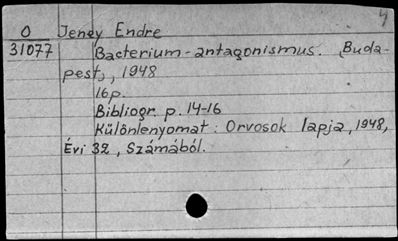 O Jeney Endre
31077 Bacterium-antagonismus. (Buda-
pest), 1948
16p.
Bibliogr. p. 14-16
Különlenyomat: Orvosok lapja, 1948,
Évi 32, Számából.